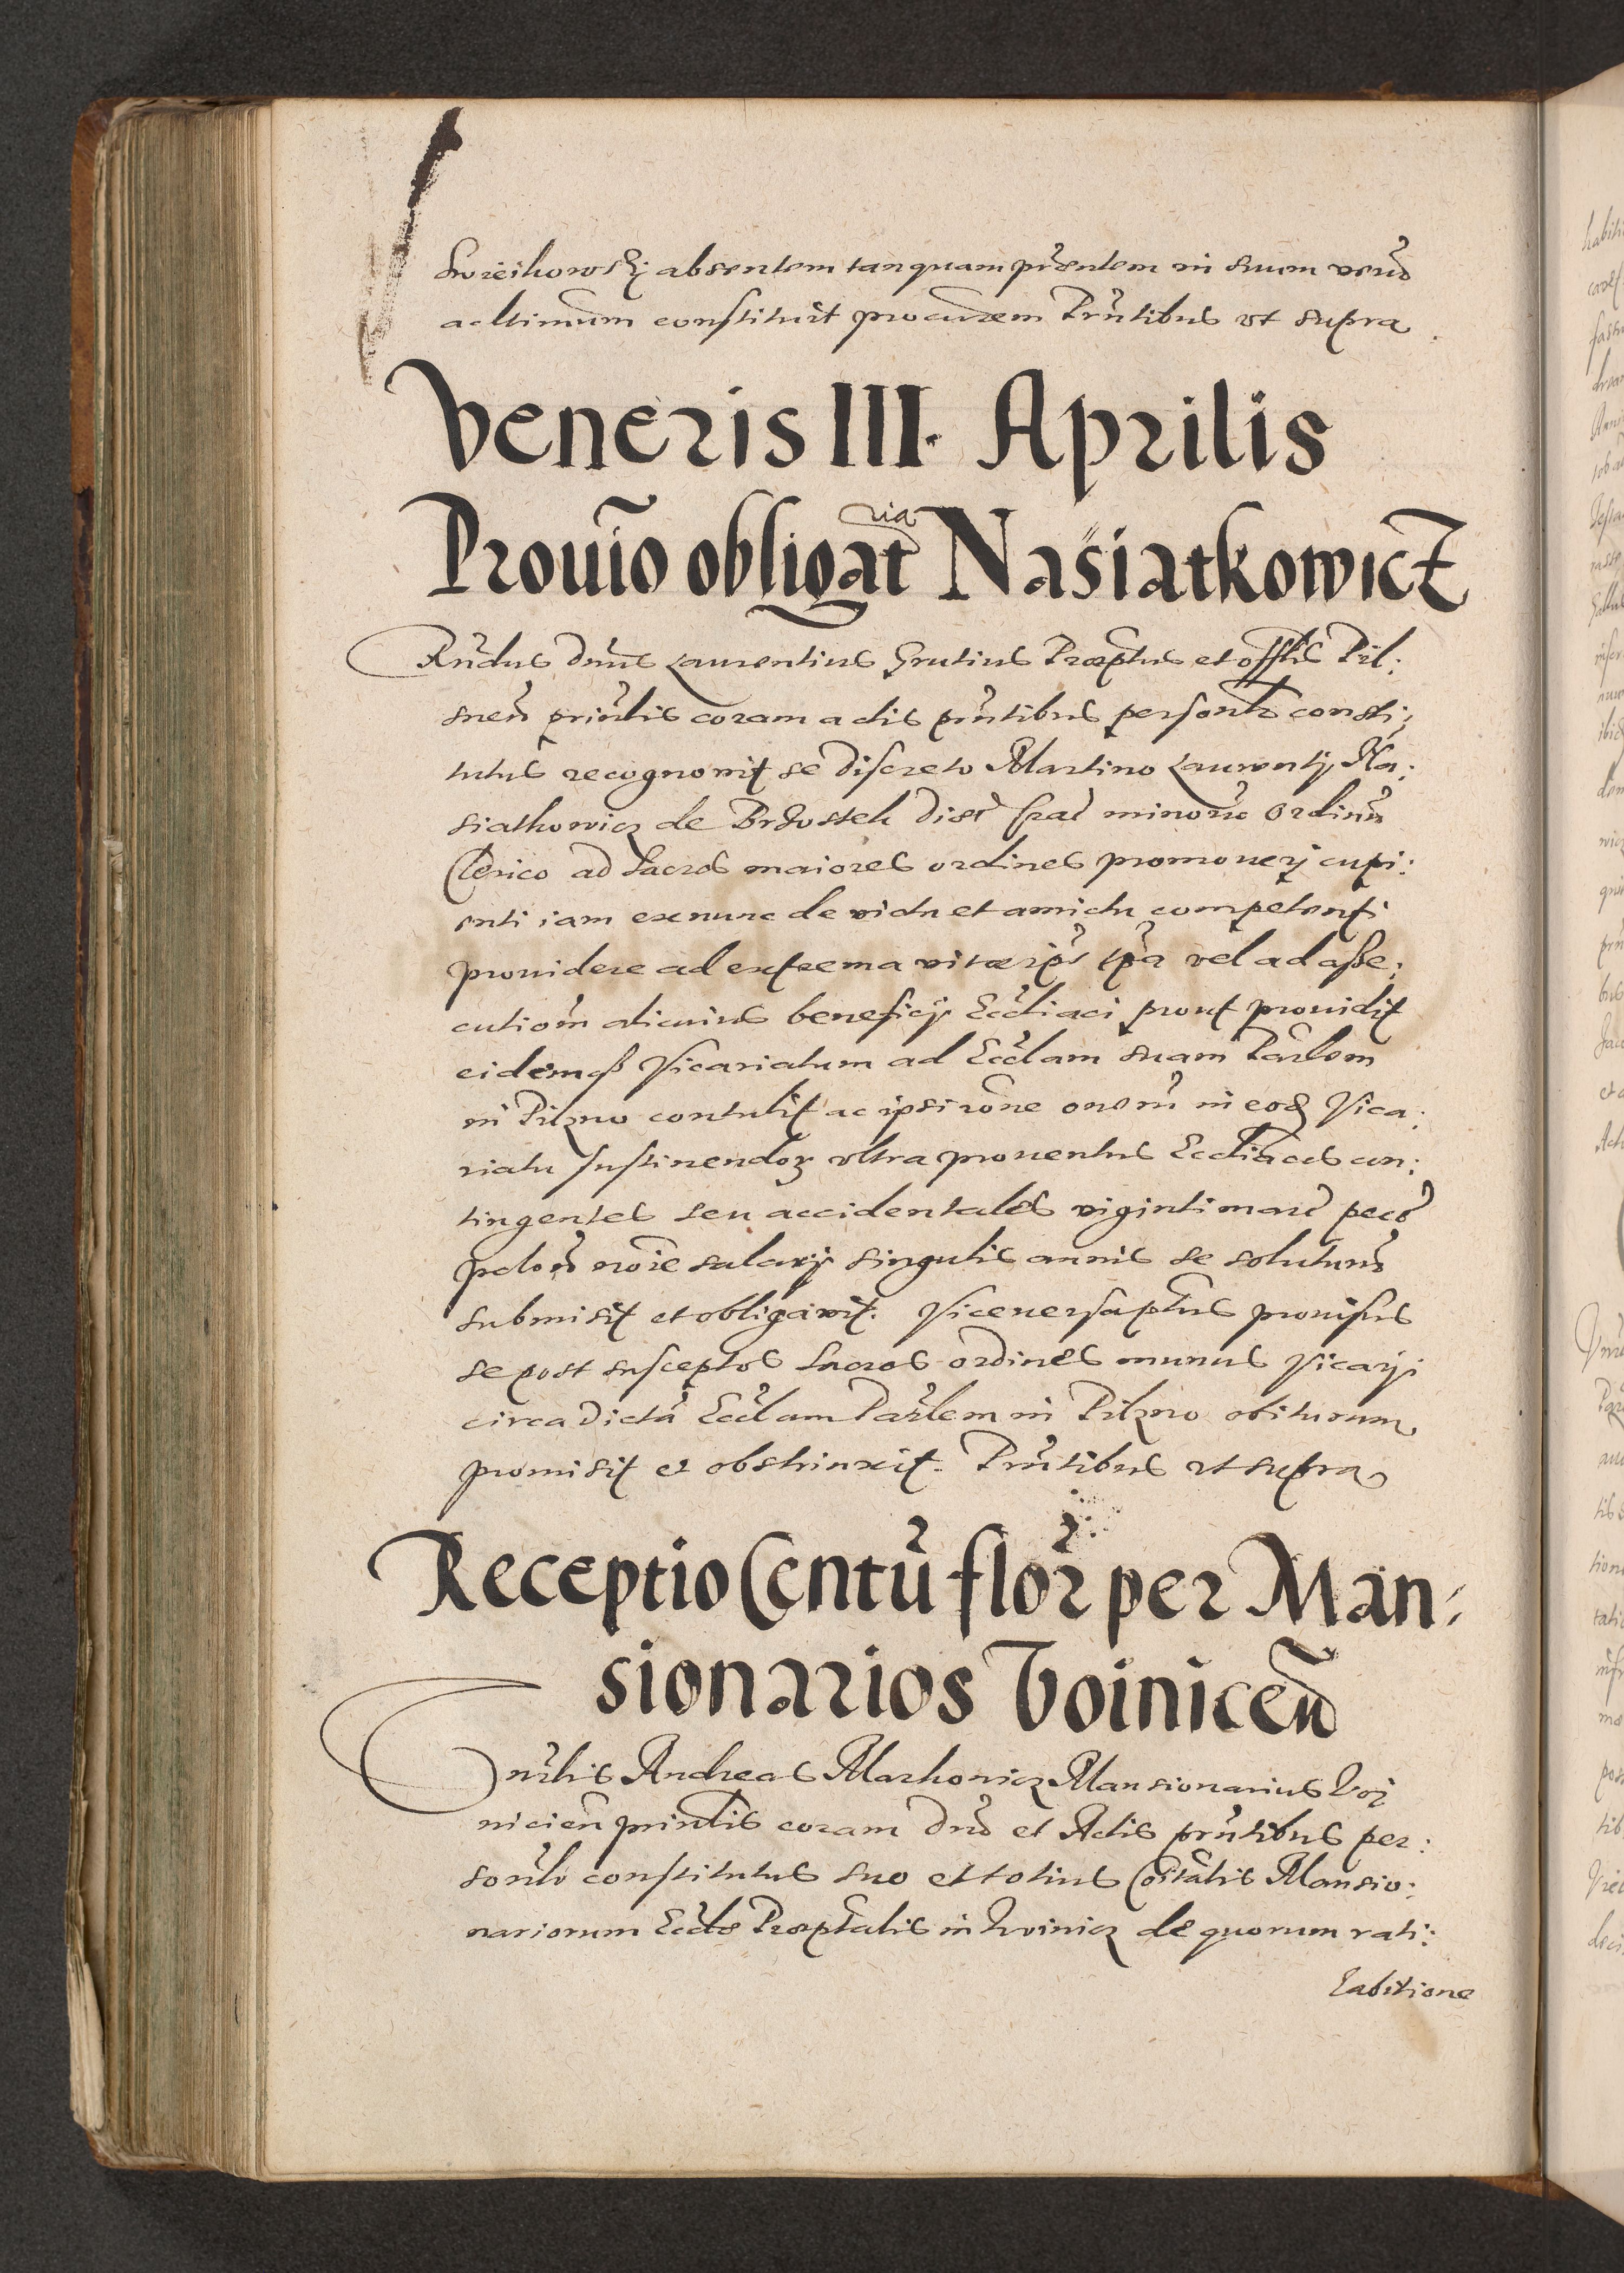 absentem tanquam pñtem in suum verũ
ac ltimum constituit procurem Pñtibus vt supra
Veneris III. Aprilis
Prouĩo obligatria Nasiatkowicz
Rñdus Dnũs Laurentius Grutius Praeptus et offlis Pil:
sneñ prinlis coram actis pñtibus personlr consti:
tutus recognovit se discreto Martino Laurentij Na:
siatkowicz de Brzostek dioec̃ Crac̃ minorũ ordinũ
Clerico ad sacros maiores ordines promouerj cupi:
enti iam ex nunc de victu et amictu competenti
prouidere ad extrema vitae ipś tpa vel ad asse:
cutiom̃ alicuius beneficij Eccliaci prout prouidit
eidemq3 Vicariatum ad Ecclam suam Parlem
in Pilzno contulit ac ipsi rõne onerũ in eod Vica:
riatu sustinendor vltra prouentus Ecclãcos con:
tingentes seu accidentales viginti marc̃ pecc̃
polon̄ nõie salarij singulis annis se soluturũ
submisit et obligavit. Vice versa ptus prouisus
se post susceptos sacros ordines munus Vicarij
circa dictã Ecclam Parlem in Pilzno obiturum
promisit et obstrinxit. Pñtibus vt supra
Receptio Centũ flor per Man:
sionarios Voiniceñ
Andreas Markowicz Mansionarius Voj
nicieñ prinlis coram Dño et Actis pñtibus per:
sonlr constitutus suo et totius Cõitatis Mansio:
nariorum Eccle Praeptalis in Woinicz de quorum rati:
habitione